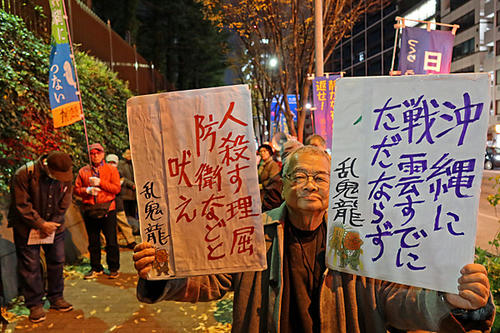 につない
人殺す理屈
防衛などと
吠え
乱鬼龍
沖縄に
戦雲すでに
ただならず
乱鬼龍
返せ!
日